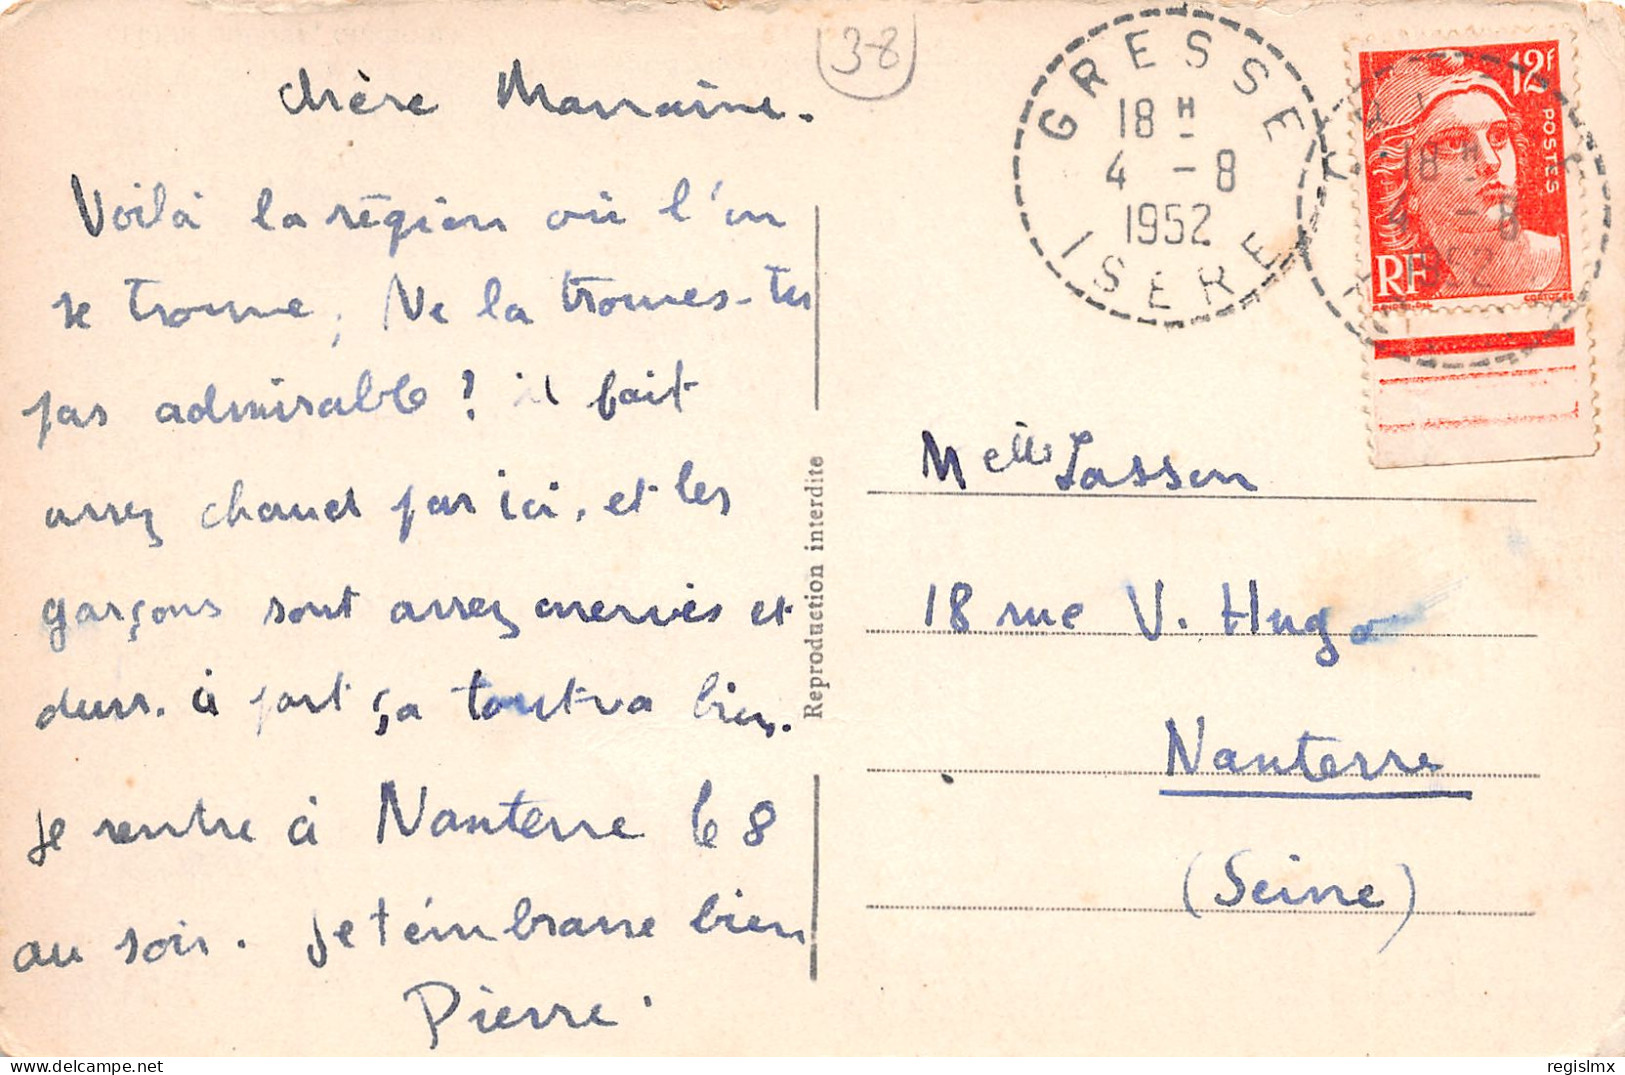 38
chère Marraine.
Voilà la région où l'on
se trouve, Ne la trouves-tu
pas admirable ? il fait
assez chaud par ici, et les
garçons sont assez énervés et
durs. à part ça tout va bien.
je rentre à Nanterre le 8
au soir. je t'embrasse bien
Pierre.
Reproduction interdite
GRESSE
18 H
4 - 8
1952
ISERE
12F
POSTES
RF
18 H
4 - 8
1952
CORTOT
Melle Lasson
18 rue V. Hugo
Nanterre
(Seine)
regislmx